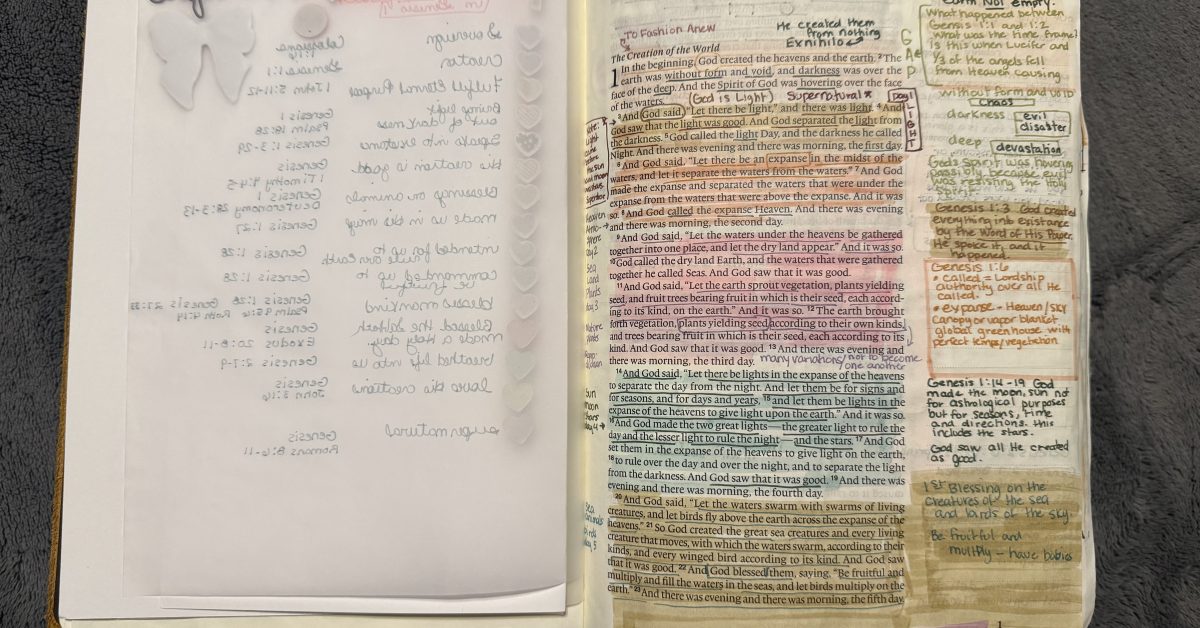 in Genesis 1
Sovereign
Colossians
1:16
Creator
Genesis 1:1
Fulfill Eternal Purpose
1 John 5:11-12
Brings light
out of darkness
Genesis 1
Psalm 18:28
Speaks into existence
Genesis 1:3-29
His creation is good
Genesis
1 Timothy 4:4-5
Blessing on animals
Genesis 1
Deuteronomy 28:3-13
made us in His image
Genesis 1:27
intended for us to
Genesis 1:28
commanded us to
be fruitful
Genesis 1:28
blessed mankind
Genesis 1:28 Genesis 27:27
Psalm Ruth 4:14
Blessed the Sabbath
made a Holy day
Genesis
Exodus 20:8-11
breathed life into us
Genesis 2:7-9
loves His creations
Genesis
John 3:16
supernatural
Genesis
Romans 8:6-11
To Fashion Anew
He created them
from nothing
Exnihilo
GAP
The Creation of the World
1 In the beginning, God created the heavens and the earth. 2 The
earth was without form and void, and darkness was over the
face of the deep. And the Spirit of God was hovering over the face
of the waters.
(God is Light) Supernatural*
Day 1
LIGHT
3 And God said, "Let there be light," and there was light. 4 And
God saw that the light was good. And God separated the light from
the darkness. 5 God called the light Day, and the darkness he called
Night. And there was evening and there was morning, the first day.
6 And God said, "Let there be an expanse in the midst of the
waters, and let it separate the waters from the waters." 7 And God
made the expanse and separated the waters that were under the
expanse from the waters that were above the expanse. And it was
so. 8 And God called the expanse Heaven. And there was evening
and there was morning, the second day.
9 And God said, "Let the waters under the heavens be gathered
together into one place, and let the dry land appear." And it was so.
10 God called the dry land Earth, and the waters that were gathered
together he called Seas. And God saw that it was good.
11 And God said, "Let the earth sprout vegetation, plants yielding
seed, and fruit trees bearing fruit in which is their seed, each accord-
ing to its kind, on the earth." And it was so. 12 The earth brought
forth vegetation, plants yielding seed according to their own kinds,
and trees bearing fruit in which is their seed, each according to its
kind. And God saw that it was good. 13 And there was evening and
there was morning, the third day.
many variations/not to become
one another
14 And God said, "Let there be lights in the expanse of the heavens
to separate the day from the night. And let them be for signs and
for seasons, and for days and years, 15 and let them be lights in the
expanse of the heavens to give light upon the earth." And it was so.
16 And God made the two great lights—the greater light to rule the
day and the lesser light to rule the night—and the stars. 17 And God
set them in the expanse of the heavens to give light on the earth,
18 to rule over the day and over the night, and to separate the light
from the darkness. And God saw that it was good. 19 And there was
evening and there was morning, the fourth day.
20 And God said, "Let the waters swarm with swarms of living
creatures, and let birds fly above the earth across the expanse of the
heavens." 21 So God created the great sea creatures and every living
creature that moves, with which the waters swarm, according to their
kinds, and every winged bird according to its kind. And God saw
that it was good. 22 And God blessed them, saying, "Be fruitful and
multiply and fill the waters in the seas, and let birds multiply on the
earth." 23 And there was evening and there was morning, the fifth day.
Note:
Light
Heaven
day 2
Sea
Land
Plants
day 3
Sun
moon
stars
day 4
Sea
Birds
day 5
earth Not empty.
What happened between
Gensis 1:1 and 1:2
What was the time frame
Is this when Lucifer and
1/3 of the angels fell
from Heaven causing
without form and void
chaos
darkness
evil
disaster
deep
devastation
God's Spirit was hovering
possibly because evil
was resisting the Holy
Spirit
Genesis 1:3 God created
everything into existance
by the Word of His Power.
He spoke it, and it
happened.
Genesis 1:6
• called = Lordship
authority over all He
called.
• expanse - Heaven/sky
Canopy or vapor blanket
global greenhouse with
perfect temps/vegetation
Genesis 1:14-19 God
made the moon, sun not
for astrological purposes
but for seasons, time
and directions. this
includes the stars.
God saw all He created
as good.
1st Blessing on the
creatures of the sea
and birds of the sky.
Be fruitful and
multiply - have babies
1